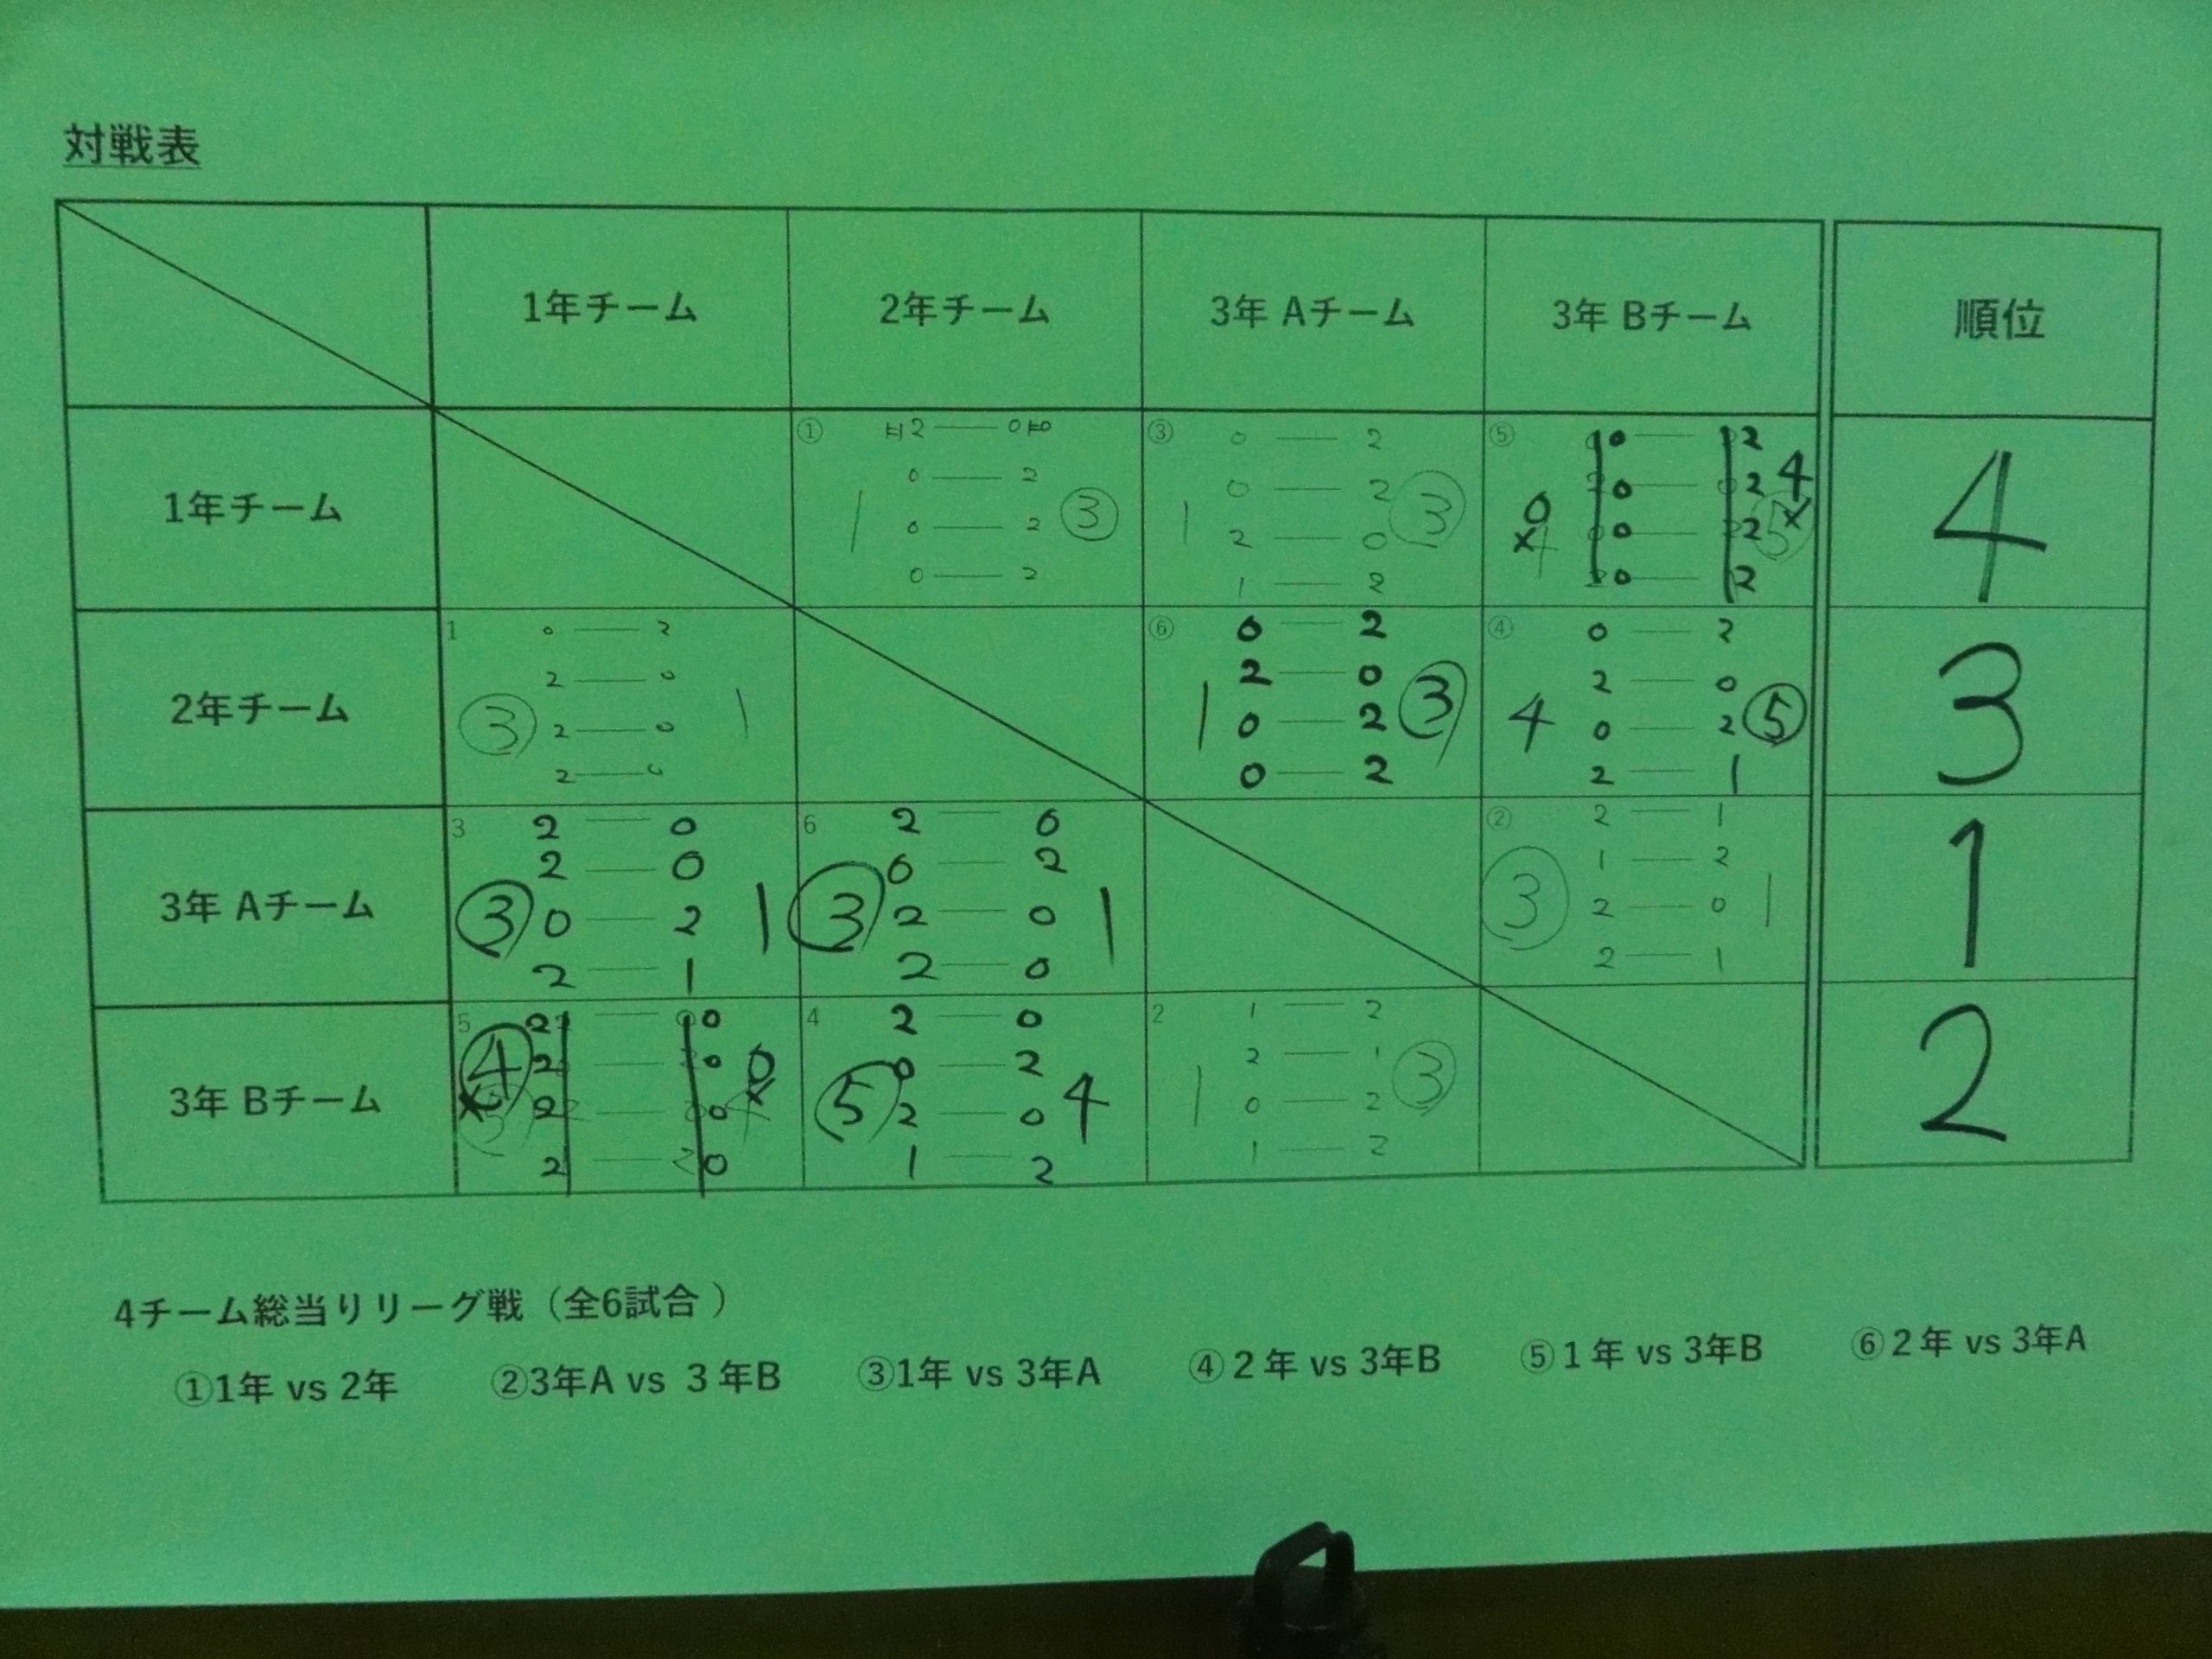 対戦表
1年チーム 2年チーム 3年 Aチーム 3年 Bチーム 順位
1年チーム
① 2 — 0
0 — 2
1 0 — 2 ③
0 — 2
③ 0 — 2
0 — 2
1 2 — 0 ③
1 — 2
⑤ 0 — 2
0 — 2 4
0 0 — 2
0 — 2
4
2年チーム
1 0 — 2
2 — 0
③ 2 — 0 1
2 — 0
⑥ 0 — 2
2 — 0
1 0 — 2 ③
0 — 2
④ 0 — 2
2 — 0
4 0 — 2 ⑤
2 — 1
3
3年 Aチーム
3 2 — 0
2 — 0
③ 0 — 2 1
2 — 1
6 2 — 0
0 — 2
③ 2 — 0 1
2 — 0
② 2 — 1
1 — 2
③ 2 — 0 1
2 — 1
1
3年 Bチーム
5 2 — 0
④ 2 — 0 0
2 — 0
2 — 0
4 2 — 0
0 — 2
⑤ 2 — 0 4
1 — 2
2 1 — 2
2 — 1
1 0 — 2 ③
1 — 2
2
4チーム総当りリーグ戦（全6試合）
①1年 vs 2年 ②3年A vs 3年B ③1年 vs 3年A ④2年 vs 3年B ⑤1年 vs 3年B ⑥2年 vs 3年A